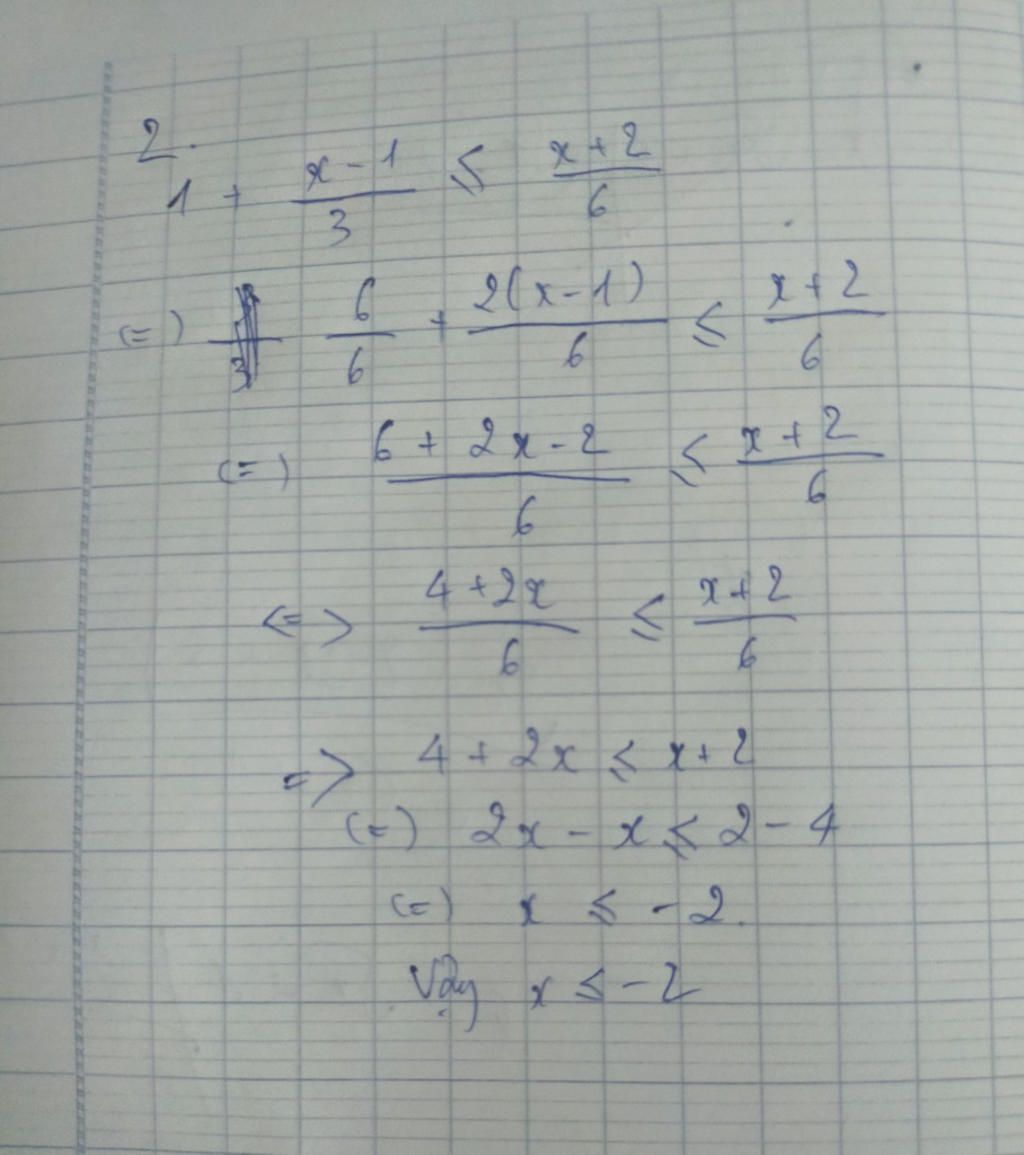 2.
1 + \frac{x-1}{3} ≤ \frac{x+2}{6}
(=) \frac{6}{6} + \frac{2(x-1)}{6} ≤ \frac{x+2}{6}
(=) \frac{6+2x-2}{6} ≤ \frac{x+2}{6}
<=> \frac{4+2x}{6} ≤ \frac{x+2}{6}
=> 4 + 2x ≤ x+2
(=) 2x - x ≤ 2 - 4
(=) x ≤ -2.
Vậy x ≤ -2